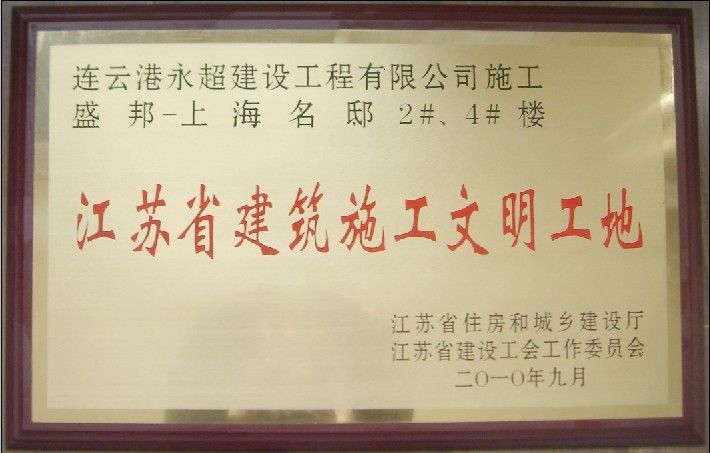 连云港永超建设工程有限公司施工
盛邦-上海名邸2#、4#楼
江苏省建筑施工文明工地
江苏省住房和城乡建设厅
江苏省建设工会工作委员会
二〇一〇年九月